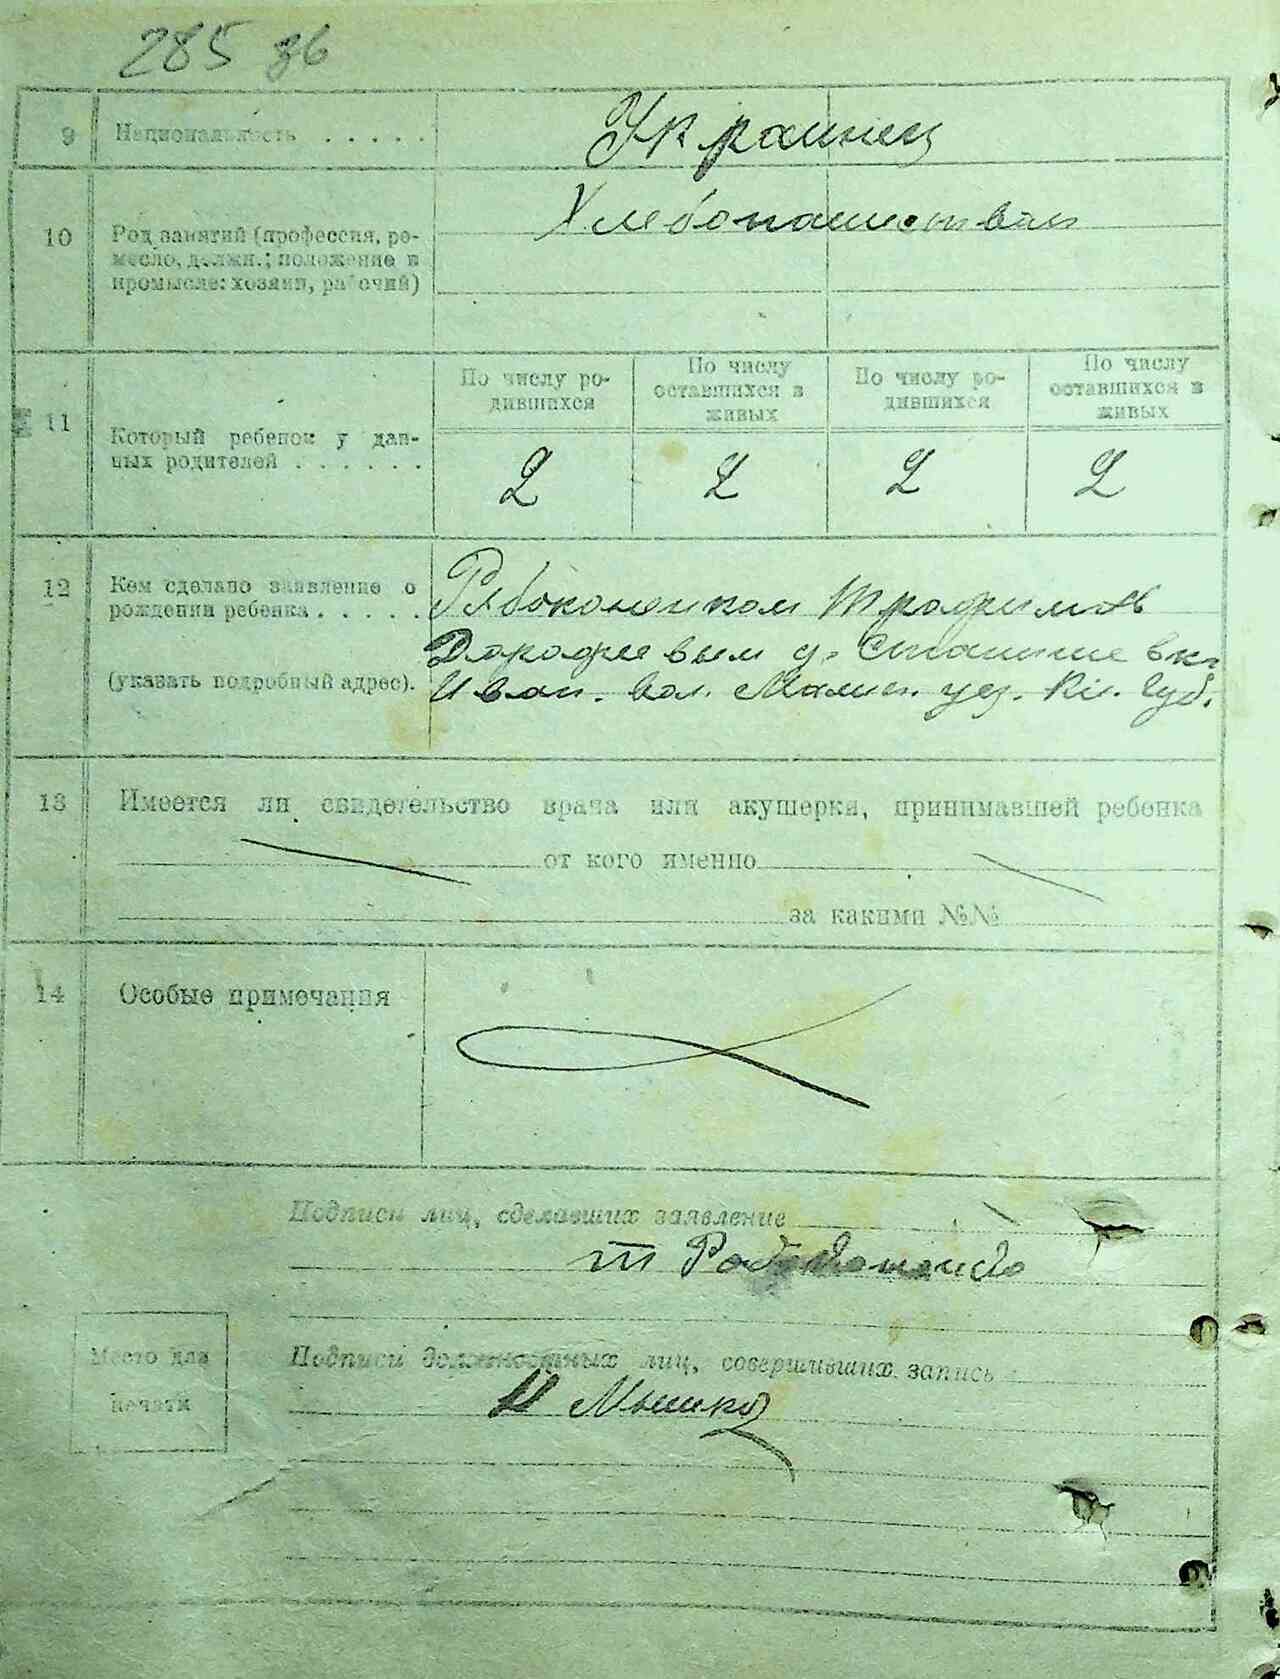 285 зв
9 Национальность . . . . . Украинец
10 Род занятий (профессия, ре-
месло, должн.; положение в
промысле: хозяин, рабочий)
Хлебопашество
11 Который ребенок у дан-
ных родителей . . . . . .
По числу ро-
дившихся
По числу
оставшихся в
живых
По числу ро-
дившихся
По числу
оставшихся в
живых
2 2 2 2
12 Кем сделано заявление о
рождении ребенка . . . . .
(указать подробный адрес).
Рябоконьиком Трафимом
Дарафеевым
Иван. вол. Малин. уез. Кіе. Губ.
13 Имеется ли свидетельство врача или акушерки, принимавшей ребенка
от кого именно
за какими №№
14 Особые примечания
Подписи лиц, сделавших заявление
Т
Подписи должностных лиц, совершивших запись
Мышко
Место для
печати